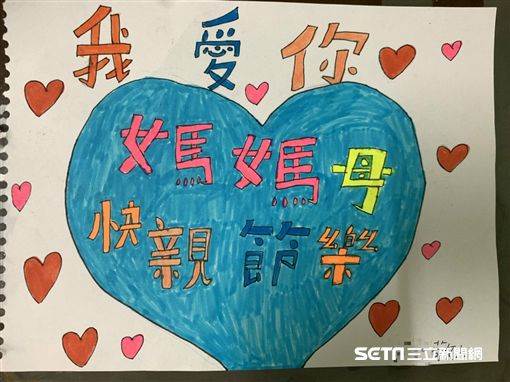 我愛你
媽媽母
快親節樂
SETN三立新聞網